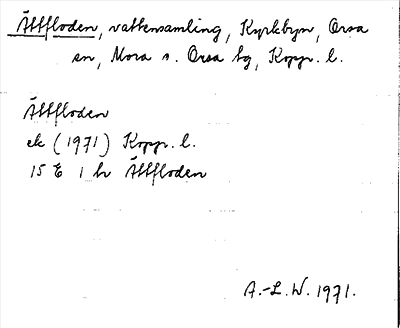 Ättfloden, vattensamling, Kyrkbyn, Orsa
sn, Mora o. Orsa tg, Kopp. l.
Ättfloden
ek (1971) Kopp. l.
15 E 1 h Ättfloden
A.-L. W. 1971.